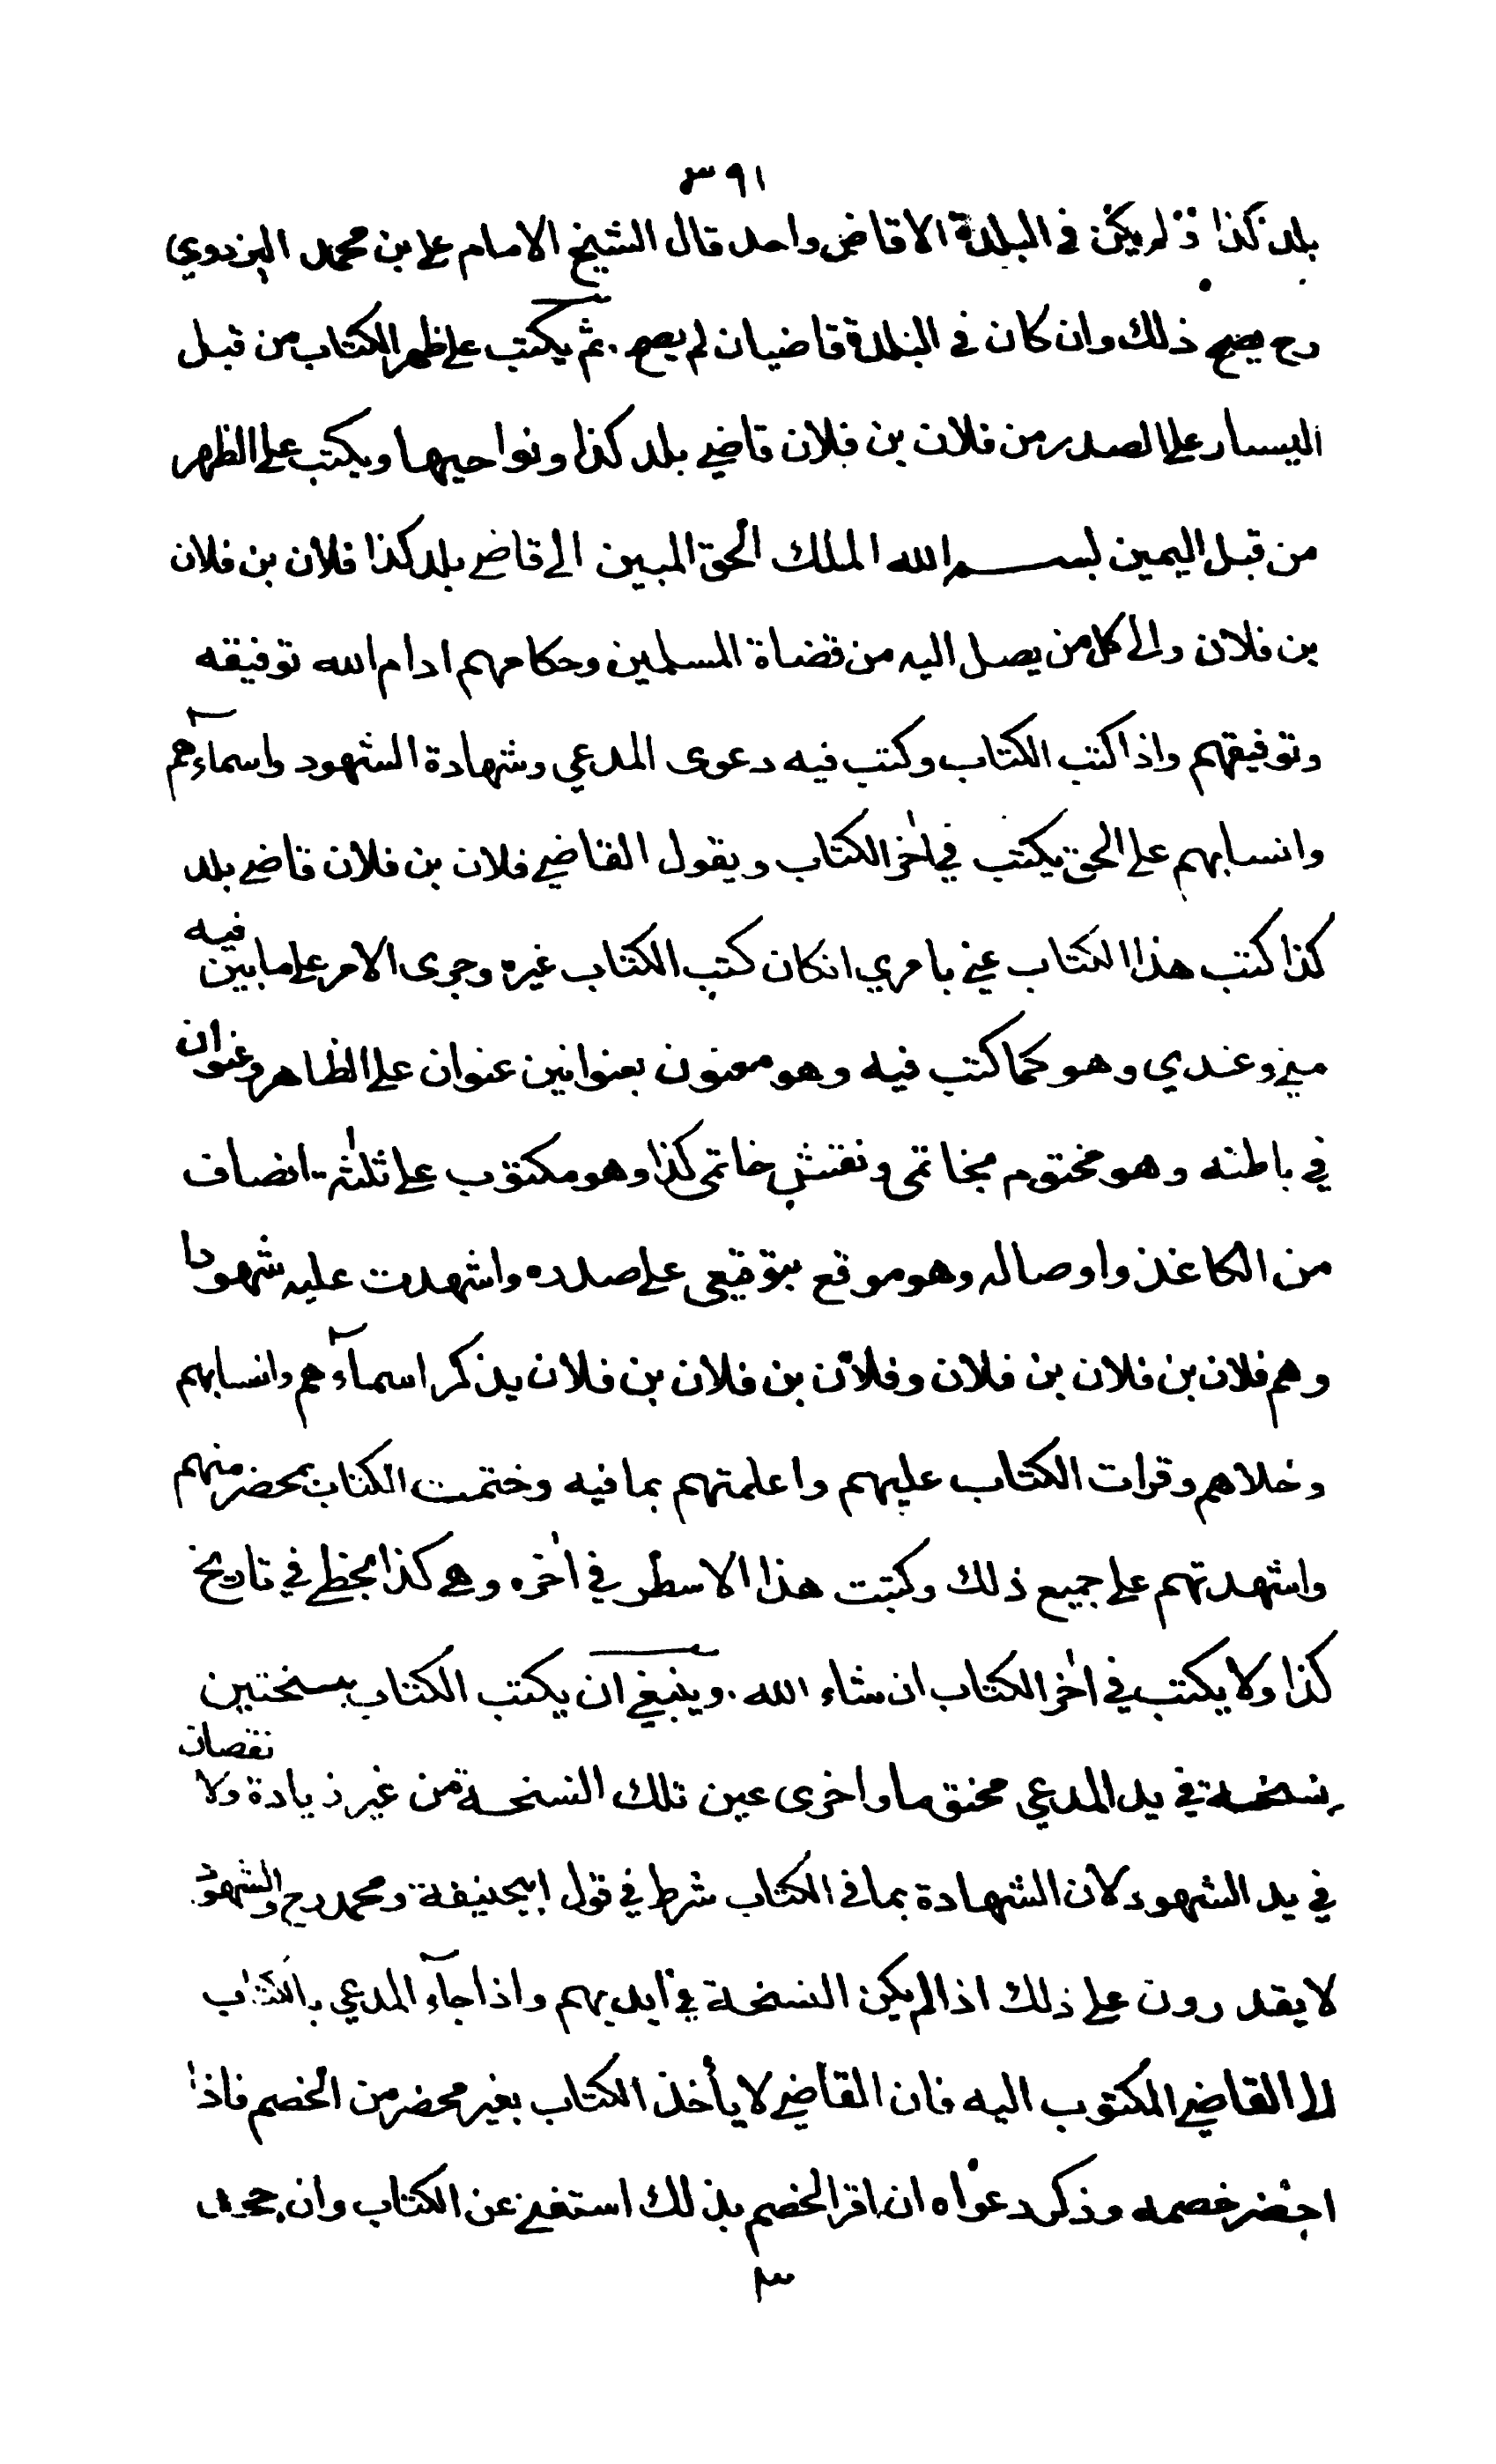 ٣٩١
بلد كذا ولم يكن في البلدة الا قاض واحد قال الشيخ الامام علي بن محمد البزدوي
رح يصح ذلك وان كان في البلدة قاضيان لم يصح . ثم يكتب على ظهر الكتاب من قبل
اليسار على الصدر من فلان بن فلان قاضي بلد كذا ونواحيها ويكتب على الظهر
من قبل اليمين بسم الله الملك الحق المبين الى قاضي بلد كذا فلان بن فلان
بن فلان والى كل من يصل اليه من قضاة المسلمين وحكامهم ادام الله توفيقه
وتوفيقهم واذا كتب الكتاب وكتب فيه دعوى المدعي وشهادة الشهود واسمآءهم
وانسابهم على الحق يكتب في اٰخر الكتاب ويقول القاضي فلان بن فلان قاضي بلد
كذا كتب هذا الكتاب عني بامري انكان كتب الكتاب غيره وجرى الامر على ما بين فيه
مني وعندي وهو كما كتب فيه وهو معنون بعنوانين عنوان على الظاهر وعنوان
في باطنه وهو مختوم بخاتمي ونقش خاتمي كذا وهو مكتوب على ثلٰثة انصاف
من الكاغذ واوصاله وهو موقع بتوقيعي على صدره واشهدت عليه شهودا
وهم فلان بن فلان بن فلان وفلان بن فلان بن فلان يذكر اسمآءهم وانسابهم
وحلاهم وقرات الكتاب عليهم واعلمتهم بما فيه وختمت الكتاب بمحضر منهم
واشهدتهم على جميع ذلك وكتبت هذا الاسطر في اٰخره وهي كذا بخطي في تاريخ
كذا ولا يكتب في اٰخر الكتاب ان شاء الله . وينبغي ان يكتب الكتاب بنسختين
نسخة في يد المدعي مختوما واخرى عين تلك النسخة من غير زيادة ولا نقصان
في يد الشهود لان الشهادة بما في الكتاب شرط في قول ابيحنيفة ومحمد رح والشهود
لا يقدرون على ذلك اذا لم يكن النسخة في ايديهم واذا جآء المدعي بالكتاب
الى القاضي المكتوب اليه فان القاضي لا يأخذ الكتاب بغير محضر من الخصم فاذا
احضر خصمه وذكر دعواه ان اقر الخصم بذلك استغنى عن الكتاب وان جحد